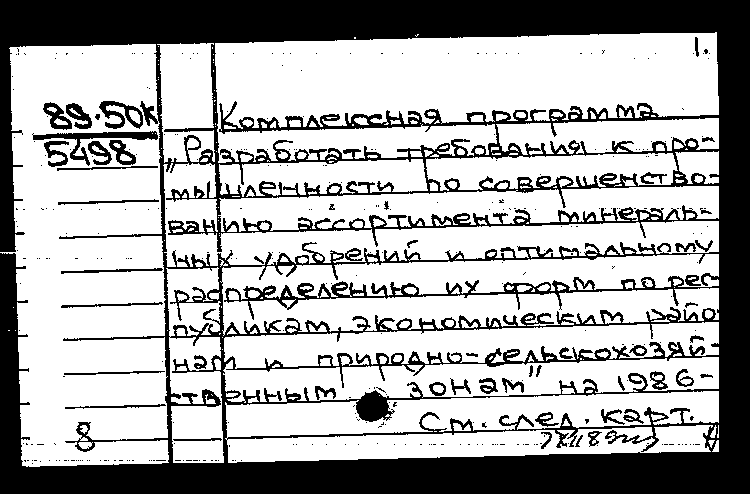 1.
89-50к
5498
Комплексная программа
„Разработать требования к про-
мышленности по совершенство-
ванию ассортимента минераль-
ных удобрений и оптимальному
распределению их форм по рес-
публикам, экономическим райо
нам и природно-сельскохозяй-
ственным зонам" на 1986-
См. след. карт.
8